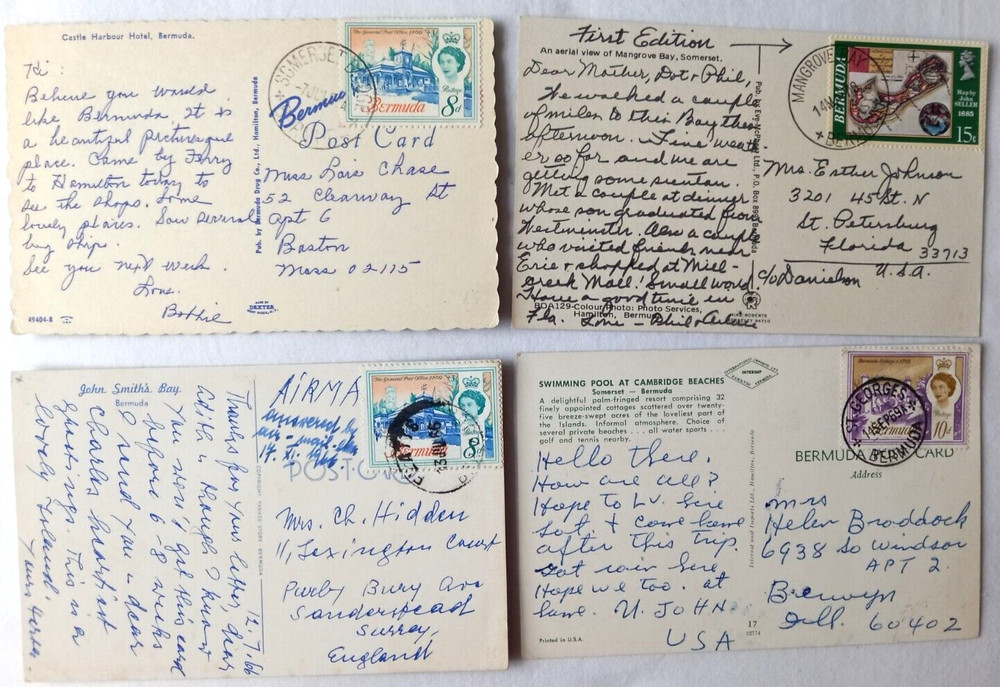 Castle Harbour Hotel, Bermuda.
Hi:
Believe you would
like Bermuda. It is
a beautiful picturesque
place. Came by Ferry
to Hamilton today to
see the shops. Some
lovely places. Saw several
big ship.
See you next week.
Love.
49404-B
Pub. by Bermuda Drug Co., Ltd., Hamilton, Bermuda.
MADE BY
DEXTER
SOMERSET
The General Post Office 1869
Postage
Bermuda 8d
Post Card
Miss Lois Chase
52 Clearway St
Apt 6
Boston
Mass 02115
First Edition
An aerial view of Mangrove Bay, Somerset.
Dear Mother, Dot & Phil,
We walked a couple
of miles to this Bay this
afternoon. Fine weath
er so far and we are
getting some suntan.
Met a couple at dinner
whose son graduated from
Westminster. Also a couple
who visited friends near
Erie & shopped at Mill-
creek Mall! Small world.
Have a good time in
Fla. Love - Phil &
BDA129-Colour Photo: Photo Services,
Hamilton, Bermuda
MANGROVE BAY
BERMUDA
BERMUDA
Map by
John
SELLER
1685
15c
Mrs. Esther Johnson
3201 45 St. N
St. Petersburg
Florida 33713
c/o Danielson U.S.A.
John Smith's Bay.
Bermuda
12.7.66
Thanks for your letter, dear
Edith
This
before 6-8 weeks
& send you &
Charles heartiest
greetings. This is a
lovely Island!
Yours Herta.
AIRMA
answered by
air-mail
POSTCARD
The General Post Office 1869
Postage
8d
Mrs. Ch. Hidden
11, Lexington Court
Purley Bury Ave
Sanderstead
Surrey,
England
SWIMMING POOL AT CAMBRIDGE BEACHES
Somerset — Bermuda
A delightful palm-fringed resort comprising 32
finely appointed cottages scattered over twenty-
five breeze-swept acres of the loveliest part of
the Islands. Informal atmosphere. Choice of
several private beaches . . . all water sports . . .
golf and tennis nearby.
Hello there.
How are all?
Hope to Lv. here
Sat & come home
after this trip.
Got rain here
Hope we too. at
home. U. JOHN
Printed in U.S.A.
17
ST. GEORGES
14 SEP 69
BERMUDA
Postage
10d
BERMUDA POST CARD
Address
Mrs
Helen Braddock
6938 So Windsor
APT 2.
Berwyn
Ill. 60402
USA